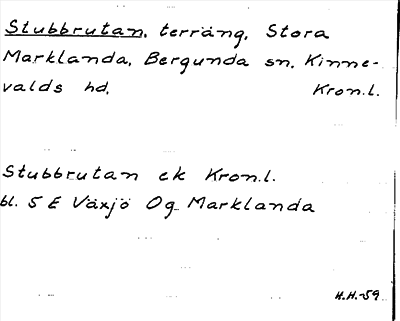 Stubbrutan, terräng, Stora
Marklanda, Bergunda sn, Kinne-
valds hd. Kron.l.
Stubbrutan ek Kron.l.
bl. 5 E Växjö Og Marklanda
H.H.-59